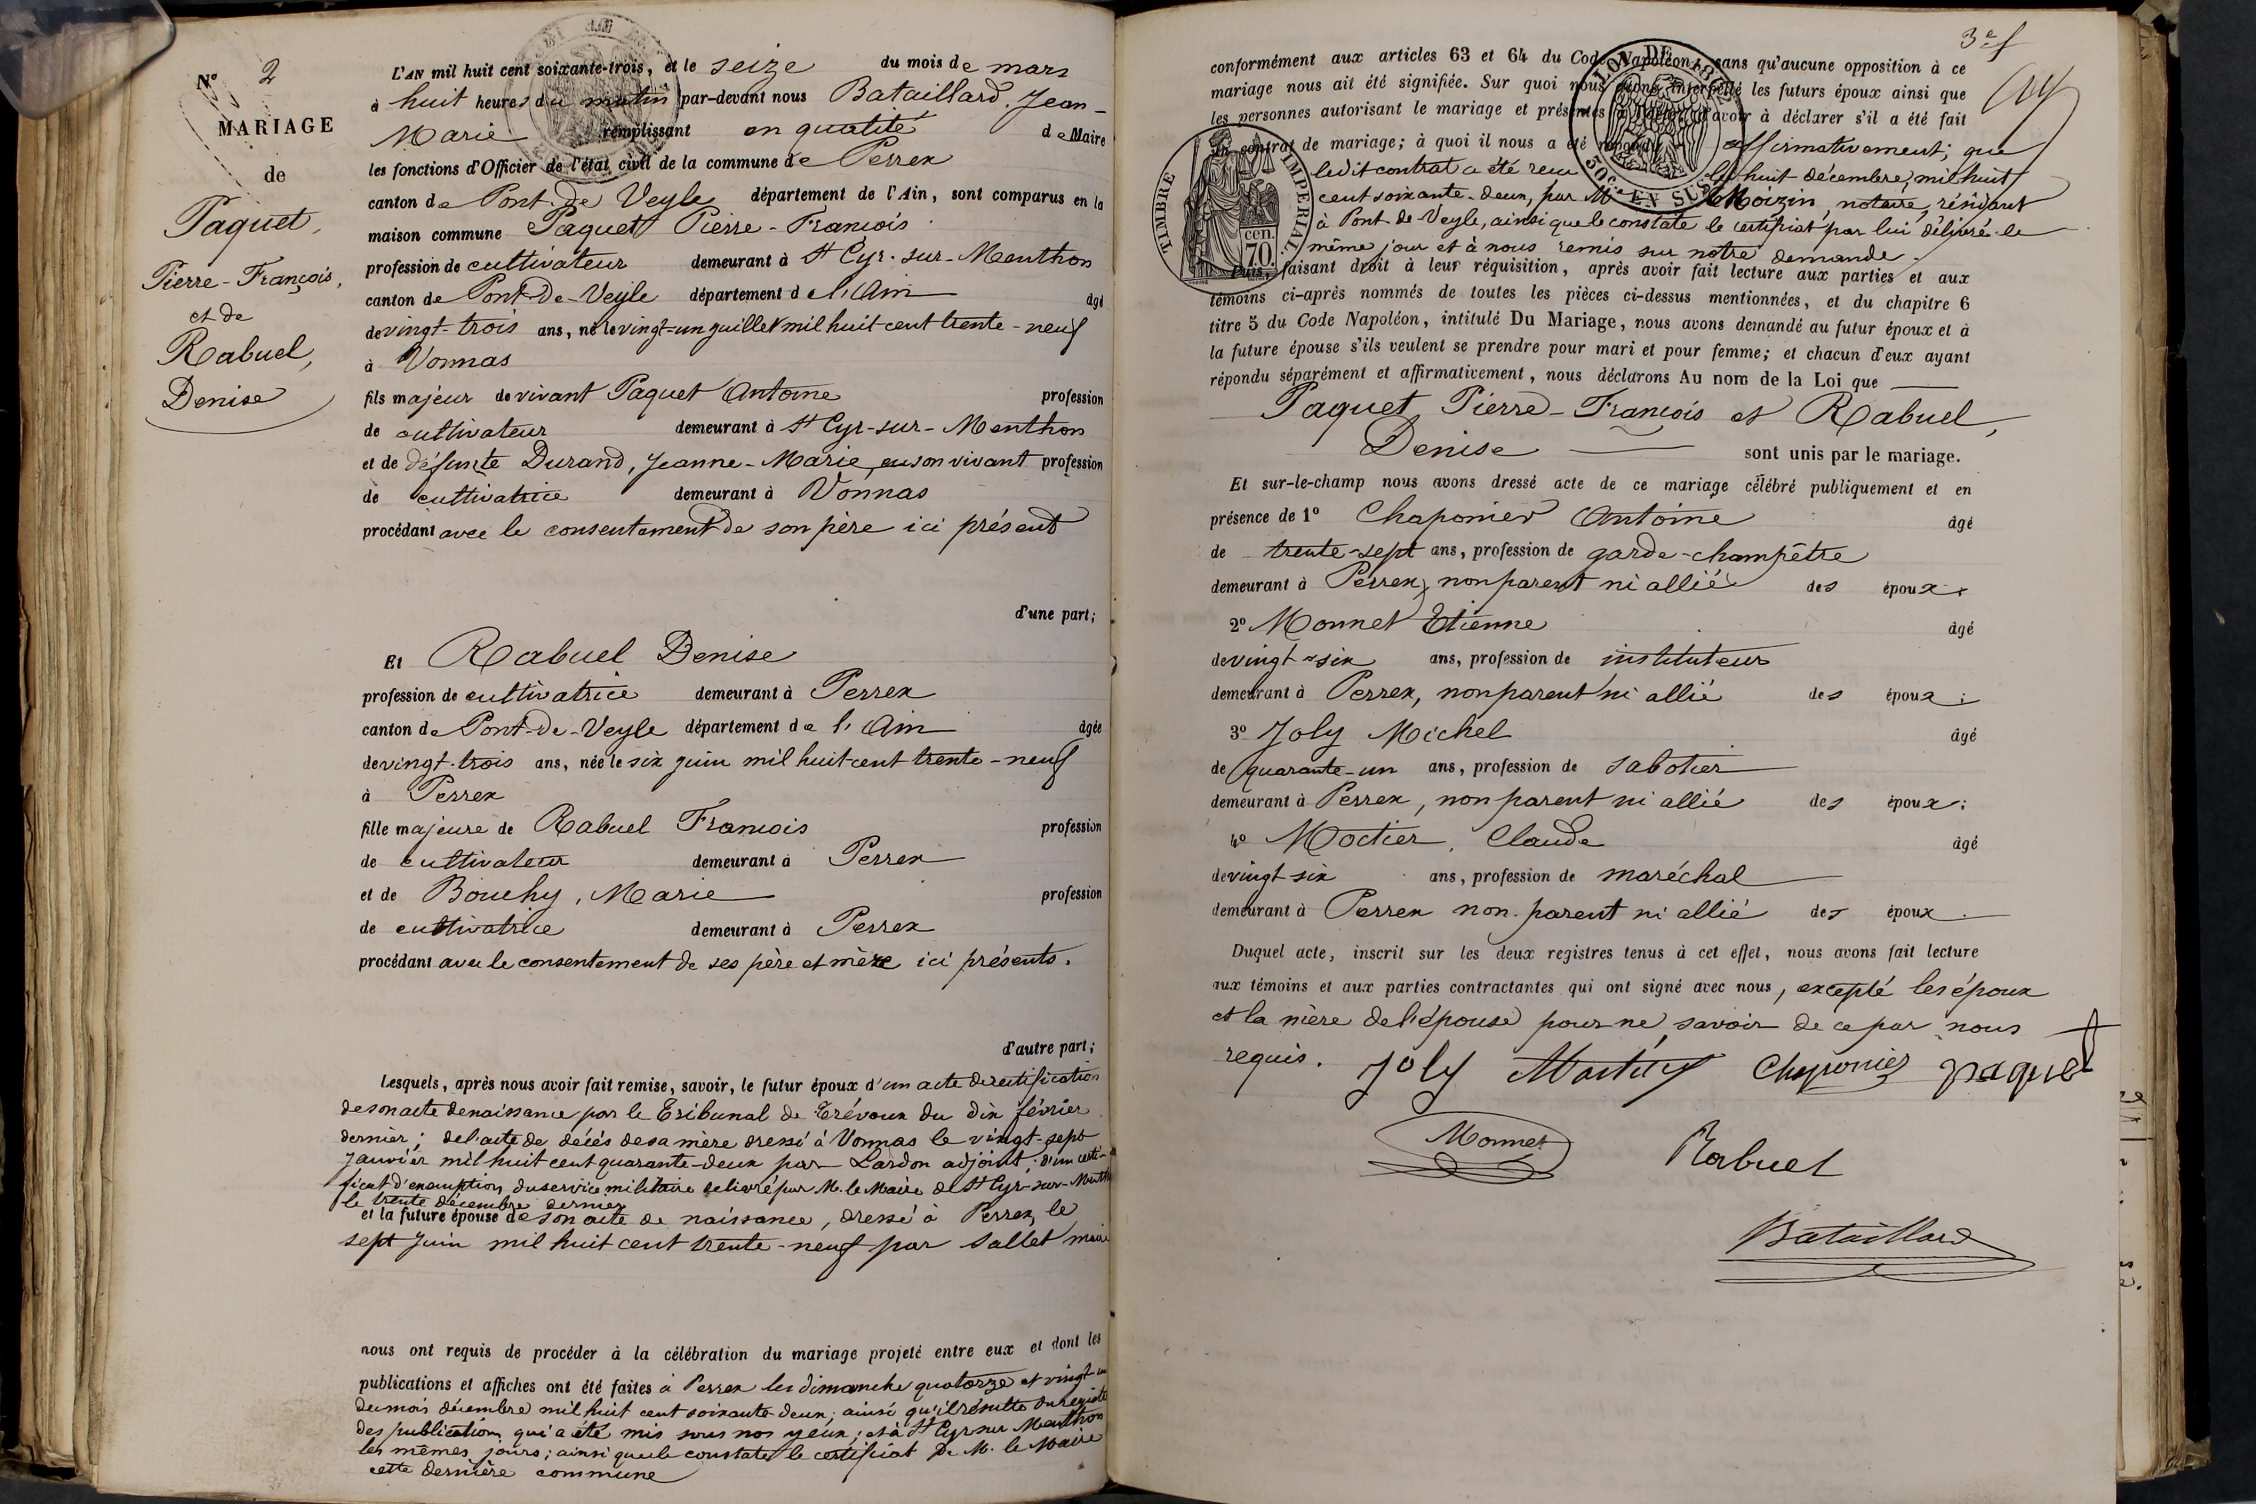 N° 2
MARIAGE
de
Paquet,
Pierre-François,
et de
Rabuel,
Denise
L'AN mil huit cent soixante-trois, et le seize du mois de mars
à huit heures du matin par-devant nous Bataillard, Jean-
Marie remplissant en qualité de Maire
les fonctions d'Officier de l'état civil de la commune de Perrex
canton de Pont-de Veyle département de l'Ain, sont comparus en la
maison commune Paquet Pierre-François
profession de cultivateur demeurant à St Cyr-sur-Menthon
canton de Pont-de-Veyle département de l'Ain âgé
de vingt-trois ans, né le vingt-un juillet mil huit cent trente-neuf
à Vonnas
fils majeur de vivant Paquet Antoine profession
de cultivateur demeurant à St Cyr-sur-Menthon
et de défunte Durand, Jeanne-Marie, en son vivant profession
de cultivatrice demeurant à Vonnas
procédant avec le consentement de son père ici présent
d'une part;
Et Rabuel Denise
profession de cultivatrice demeurant à Perrex
canton de Pont-de-Veyle département de l'Ain âgée
de vingt-trois ans, née le six juin mil huit-cent trente-neuf
à Perrex
fille majeure de Rabuel François profession
de cultivateur demeurant à Perrex
et de Bouchy, Marie profession
de cultivatrice demeurant à Perrex
procédant avec le consentement de ses père et mère ici présents.
d'autre part;
Lesquels, après nous avoir fait remise, savoir, le futur époux d'un acte de rectification
de son acte de naissance par le Tribunal de Trévoux du dix février
dernier; de l'acte de décès de sa mère dressé à Vonnas le vingt-sept
Janvier mil huit cent quarante-deux par Lardon adjoint; d'un certi-
ficat d'exemption du service militaire délivré par M. le Maire de St Cyr-sur-Menthon
le trente décembre dernier
et la future épouse de son acte de naissance, dressé à Perrex, le
sept Juin mil huit cent trente-neuf par Sallet maire
nous ont requis de procéder à la célébration du mariage projeté entre eux et dont les
publications et affiches ont été faites à Perrex les dimanche quatorze et vingt-un
du mois décembre mil huit cent soixante-deux; ainsi qu'il résulte du registre
des publications qui a été mis sous nos yeux; et à St Cyr sur Menthon
les mêmes jours; ainsi que le constate le certificat de M. le Maire
cette dernière commune
3e f
conformément aux articles 63 et 64 du Code Napoléon, sans qu'aucune opposition à ce
mariage nous ait été signifiée. Sur quoi nous avons interpellé les futurs époux ainsi que
les personnes autorisant le mariage et présentes à avoir à déclarer s'il a été fait
un contrat de mariage; à quoi il nous a été répondu affirmativement; que
ledit contrat a été reçu le huit décembre, mil huit
cent soixante-deux, par Me Moizin, notaire, résidant
à Pont-de-Veyle, ainsi que le constate le certificat par lui délivré le
même jour et à nous remis sur notre demande.
Puis, faisant droit à leur réquisition, après avoir fait lecture aux parties et aux
témoins ci-après nommés de toutes les pièces ci-dessus mentionnées, et du chapitre 6
titre 5 du Code Napoléon, intitulé Du Mariage, nous avons demandé au futur époux et à
la future épouse s'ils veulent se prendre pour mari et pour femme; et chacun d'eux ayant
répondu séparément et affirmativement, nous déclarons Au nom de la Loi que
Paquet Pierre-François et Rabuel,
Denise sont unis par le mariage.
Et sur-le-champ nous avons dressé acte de ce mariage célébré publiquement et en
présence de 1° Chaponier Antoine âgé
de trente-sept ans, profession de garde-champêtre
demeurant à Perrex, non parent ni allié des époux.
2° Monnet Etienne âgé
de vingt-six ans, profession de instituteur
demeurant à Perrex, non parent ni allié des époux;
3° Joly Michel âgé
de quarante-un ans, profession de sabotier
demeurant à Perrex, non parent ni allié des époux;
4° Moctier, Claude âgé
de vingt six ans, profession de maréchal
demeurant à Perrex non parent ni allié des époux.
Duquel acte, inscrit sur les deux registres tenus à cet effet, nous avons fait lecture
aux témoins et aux parties contractantes qui ont signé avec nous, excepté les époux
et la mère de l'épouse pour ne savoir de ce par nous
requis. Joly Chaponier paquet
Monnet Rabuel
Bataillard
TIMBRE IMPERIAL
70 cen.
50c EN SUS